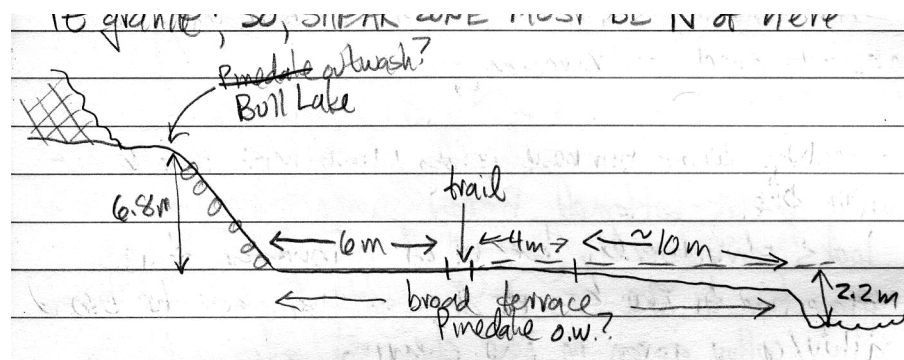 granite; so, SHEAR ZONE MUST BE N of here
Pinedale outwash?
Bull Lake
trail
6.8m
6m
4m
~10m
broad terrace
Pinedale o.w.?
2.2m